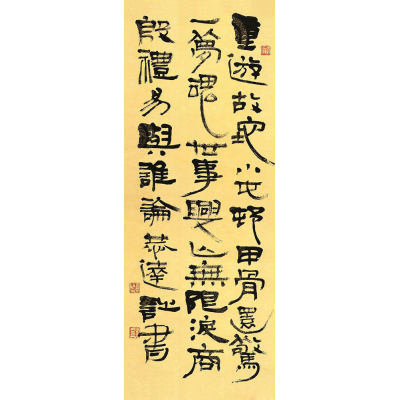 重游故地小屯邨甲骨還驚
一夢魂世事興亡無限淚商
殷禮易與誰論恭達詩書